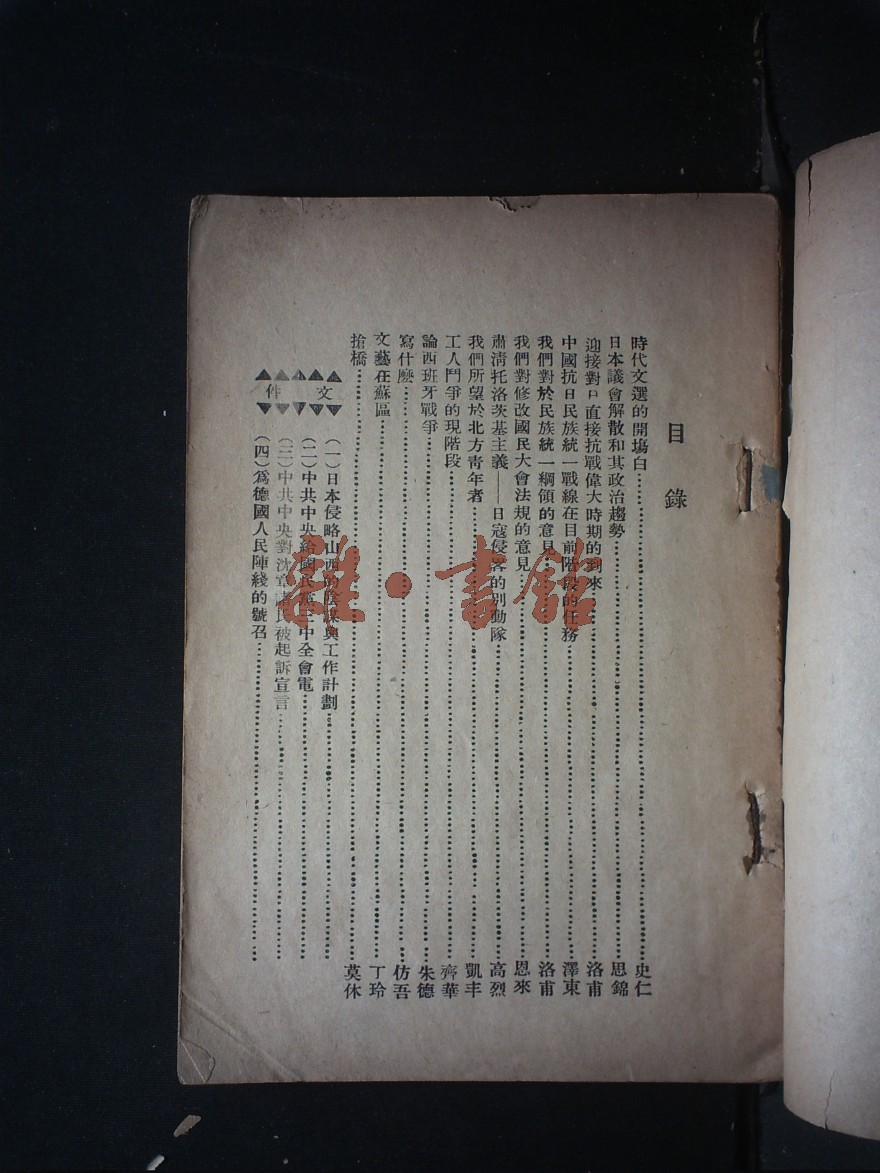 目錄
時代文選的開場白……史仁
日本議會解散和其政治趨勢……思錦
迎接對日直接抗戰偉大時期的到來……洛甫
中國抗日民族統一戰線在目前階段的任務……澤東
我們對於民族統一綱領的意見……洛甫
我們對修改國民大會法規的意見……恩來
肅清托洛茨基主義——日寇侵畧的別動隊……高烈
我們所望於北方青年者……凱丰
工人鬥爭的現階段……齊華
論西班牙戰爭……朱德
寫什麽……仿吾
文藝在蘇區……丁玲
搶橋……莫休
文件
(一)日本侵略山西的陰謀與工作計劃……
(二)中共中央給國民黨三中全會電……
(三)中共中央對沈章諸氏被起訴宣言……
(四)爲德國人民陣綫的號召……
雜·書館